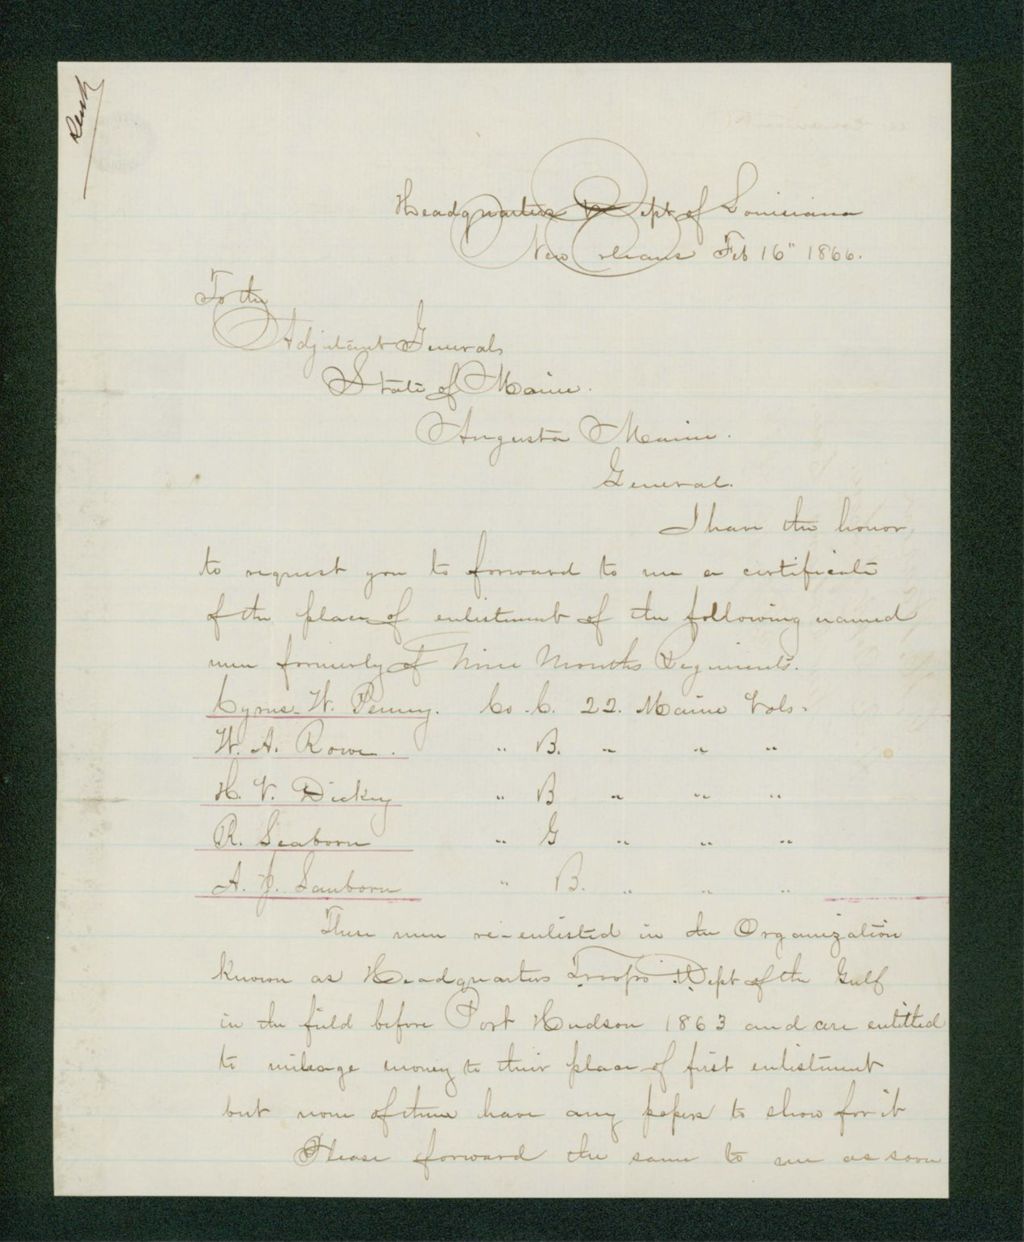 Headquarters Dept of Louisiana
New Orleans Feb 16" 1866.
To the
Adjutant Generals
State of Maine.
Augusta Maine.
General.
I have the honor
to request you to forward to me a certificate
of the place of enlistment of the following named
men formerly of Nine Months Regiments.
Cyrus W. Penney. Co. C. 22. Maine Vols.
W. A. Rowe. " B. " " "
H. V. Dickey " B " " "
R. Seaborn " G " " "
A. J. Sanborn " B. " " "
These men re-enlisted in the Organization
known as Headquarters Troops Dept of the Gulf
in the field before Port Hudson 1863 and are entitled
to mileage money to their place of first enlistment
but none of them have any papers to show for it
Please forward the same to me as soon